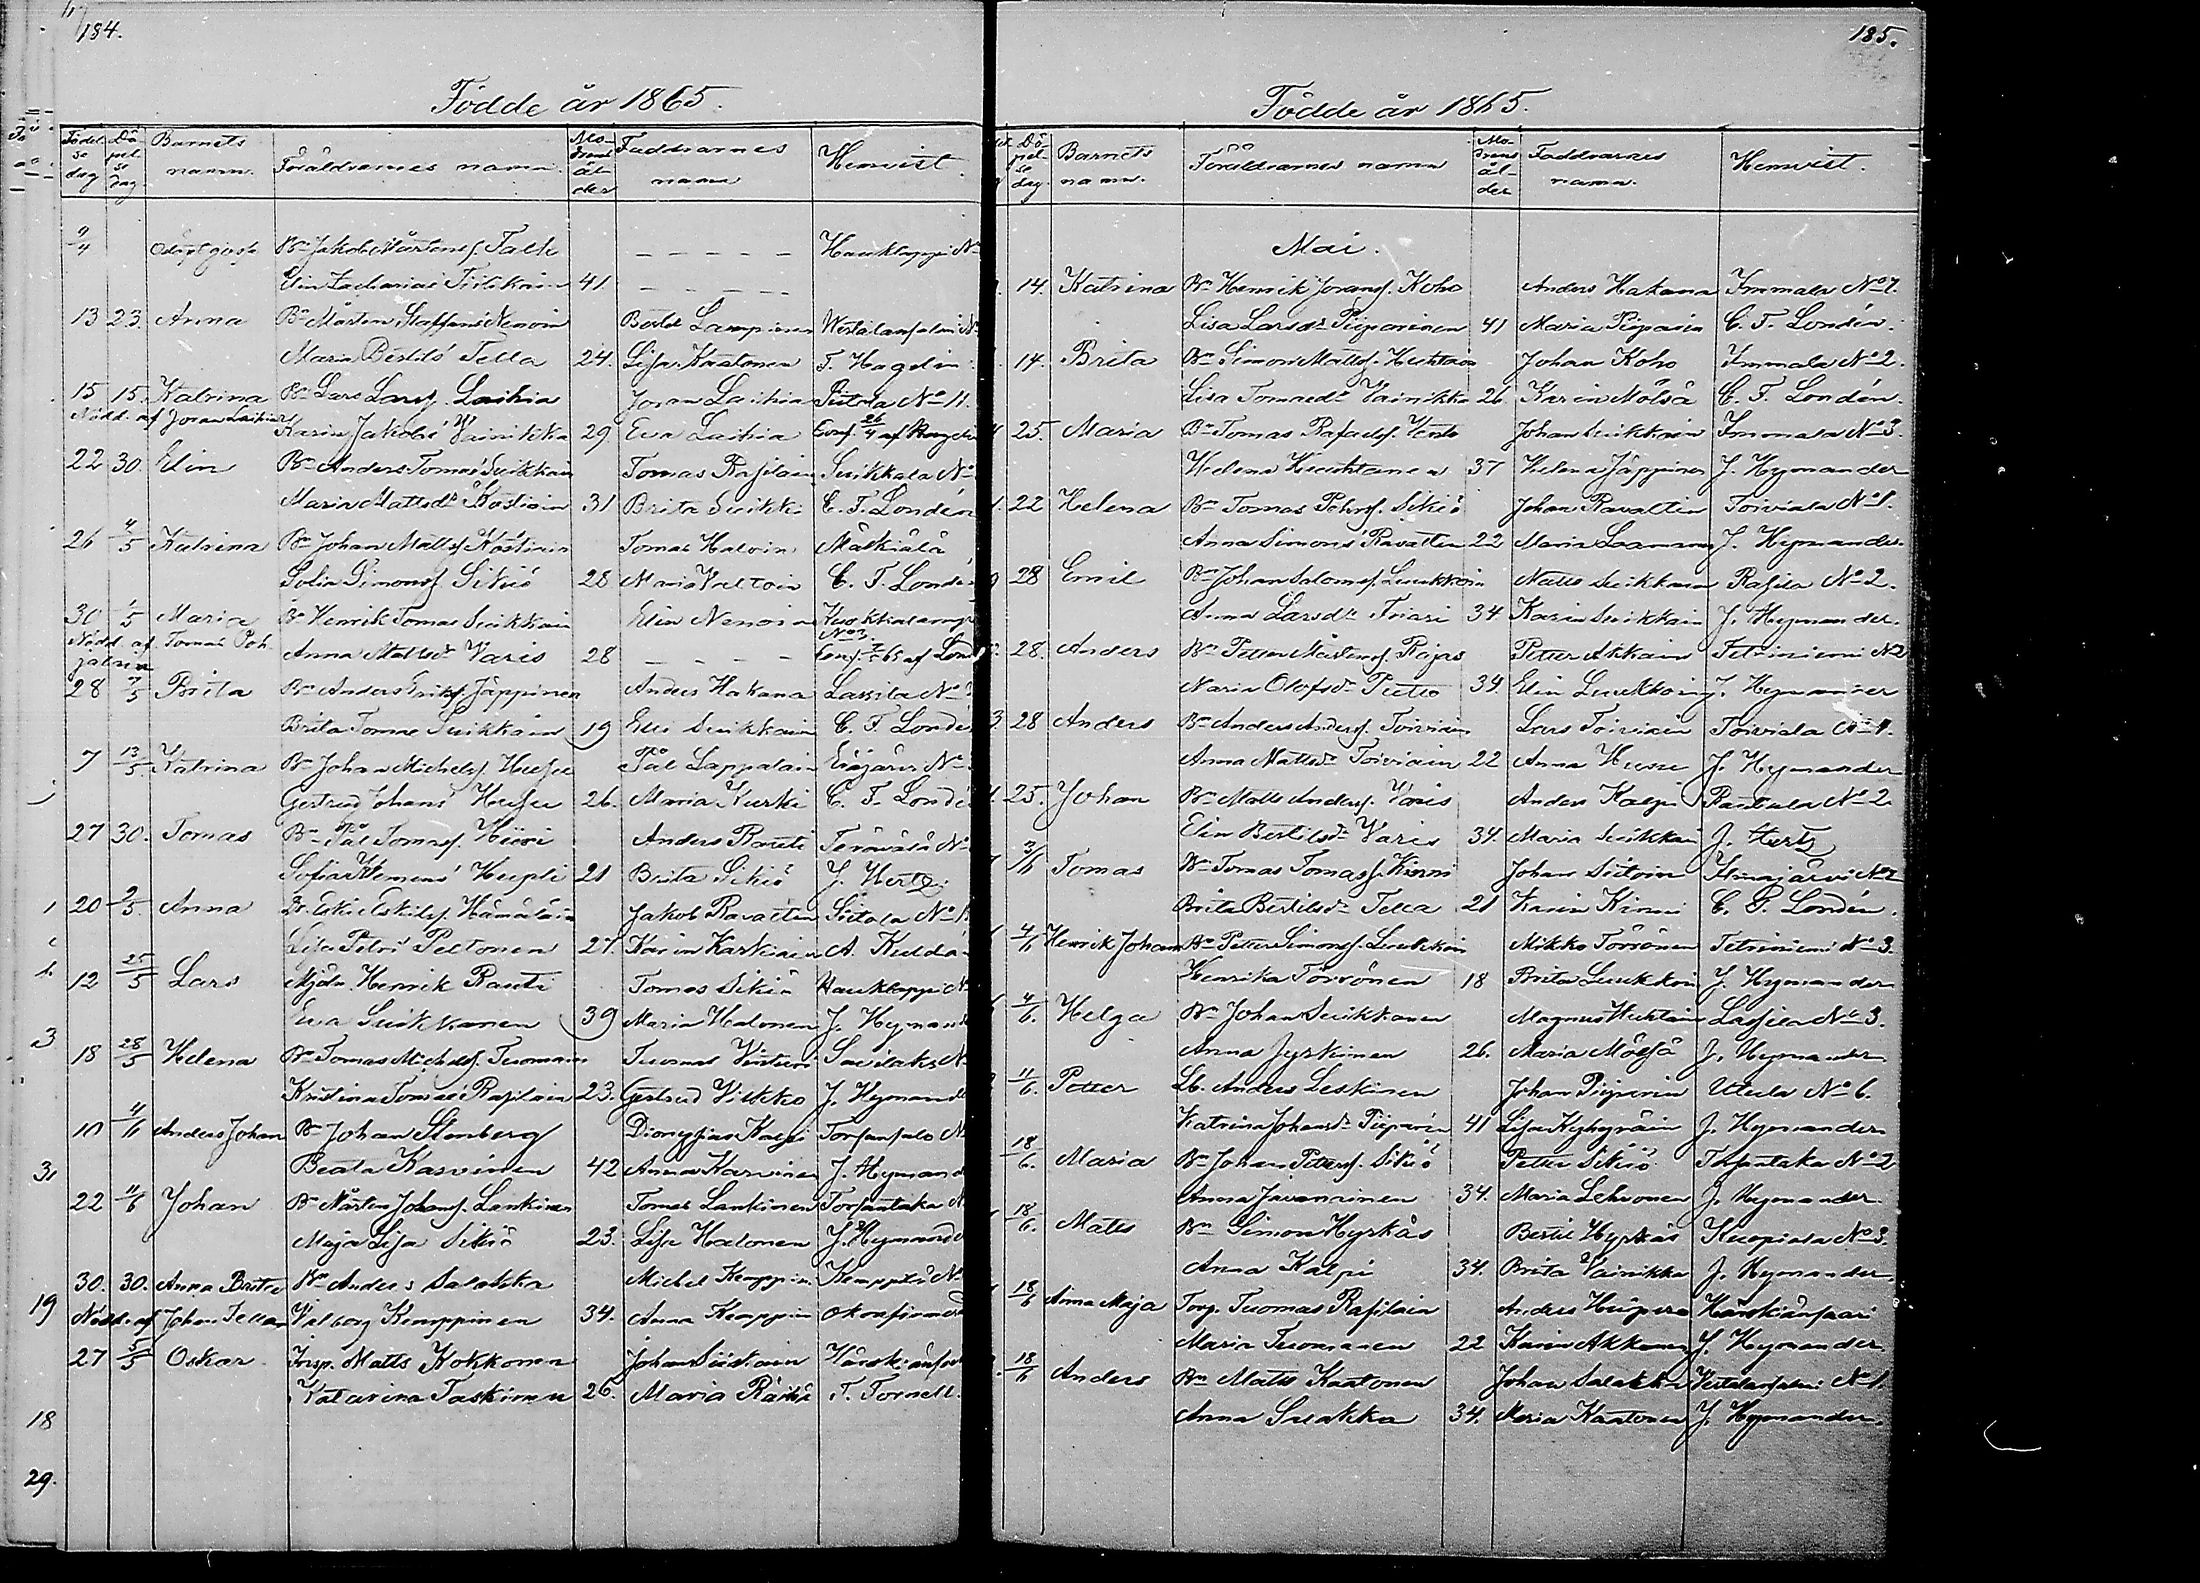 184.
Födde år 1865.
Födel se dag Dö pel se dag Barnets namn. Föräldrarnes namn. Mo drens ål der Faddrarnes namn Hemvist.
9/4 Odöpt gosse Bn Jakob Mårtens. Talk – – – – – Hauklappi No
Elin Zacharias Tiitikain 41 – – – – –
13 23. Anna Bn Mårten Staffans Nenoin Bertil Lampinen Wertälansalmi No
Maria Bertils Tella 24. Lisa Kaatonen F. Hagelin
15 15. Katrina Bn Lars Larss. Laihia Joran Laihia Pietola No 11.
Nödd. af Joran Laihia Karin Jakobs Vainikka 29 Eva Laihia Conf. 26/4 af
22 30. Elin Bn Anders Tomas Suikkain Tomas Rasilain Suikkala No
Maria Mattsdr Kostiain 31 Brita Suikki C. F. Londén
26 4/5 Katrina Bn Johan Matts. Kostiain Tomas Haloin Mälkiälä
Sofia Simons. Sikiö 28 Maria Valtoin C. F. Londén
30 1/5 Maria Bn Henrik Tomas Suikkain Elin Nenoin
Nödd af Tomas Poh Anna Mattsdr Varis 28 – – – – No 3. Conf. 65 af Lon
jalain
28 7/5 Brita Bn Anders Eriks. Jäppinen Anders Hakana Lassila No
Brita Tomas Suikkain 19 Elin Suikkain C. F. Londé
7 13/5 Katrina Bn Johan Michels. Husu Pål Lappalain Eräjärvi No
Gertrud Johans Husu 26. Maria Kurki C. F. Londé
27 30. Tomas Bn Pål Tomass. Hiiri Anders Rauti Terävälä No
Sofia Klemens Hupli 21 Brita Sikiö J. Hertz.
20 9/5. Anna Eskil Eskils. Hämäläin Jakob Ravattin Sietola No 1
Lisa Petri Peltonen 27. Karin Karkiain A. Kudda
12 25/5 Lars Mjöln. Henrik Rauti Tomas Sikiö Hauklappi No
Eva Suikkanen 39 Maria Halonen J. Heymand
18 28/5 Helena Bn Tomas Michels. Tuomain Tuomas Vinturi Savitaks No
Kristina Tomas Rasilain 23. Gertrud Vilkko J. Heymand
10 4/6 Anders Johan Bn Johan Stenberg Dionysius Kalpi Torsansalo No
Beata Kasvinen 42 Anna Karvinen J. Heymand
22 11/6 Johan Bn Mårten Johans. Lankinen Tomas Lankinen Torsantaka No
Maja Lisa Sikiö 23. Lisa Halonen J. Heymand
30. 30. Anna Brita Bn Anders Salakka Michel Kemppin Kemppilä No
Nödd. af Johan Tella Valborg Kemppinen 34. Anna Kemppin okonfirmerad
27 5/5 Oskar Insp. Matts Kokkonen Johan Siiskoin Härskiänsaar
Katarina Taskinen 26. Maria Räihä F. Tornell.
19
18
29.
185.
Födde år 1865.
Dö pel se dag. Barnets namn. Föräldrarnes namn Mo drens ål- der Faddrarnes namn. Hemvist.
Mai.
14. Katrina Bn Henrik Jorans. Koho Anders Hakana Immala No 7.
Lisa Larsdr Piiparinen 41 Maria Piiparin C. F. Londén.
14. Brita Bn Simon Matts. Huhtan Johan Koho Immala No 2.
Lisa Tomasdr Vainikka 26 Karin Mölsä C. F. Londén.
25. Maria Bn Tomas Rafaels. Vento Johan Suikkain Immala No 3.
Helena Huuhtanen 37 Helena Jäppinen J. Heymander
22 Helena Bn Tomas Sikiö Johan Ravattin Toiviala No 1.
Anna Simons Ravattin 22 Maria J. Heymander.
28 Emil Bn Johan Salomons. Luukkoin Matts Suikkain Rasila No 2.
Anna Larsdr Friari 34 Karin Suikkain J. Heymander.
28. Anders Bn Petter Mårtens. Rajas Petter Akkain Tetriniemi No 2
Maria Olofsdr Putto 34. Elin Luukkoin J. Heymander
28 Anders Bn Anders Anders. Toiviain Lars Toiviain Toiviala No 1.
Anna Mattsdr Toiviain 22 Anna Husu J. Heymander
25. Johan Bn Matts Anders. Varis Anders Kalpi Rautala No 2
Elin Bertilsdr Varis 34. Maria Suikkai J. Hertz
3/6 Tomas Bn Tomas Tomass. Kinni Johan Siitoin Ilmajärvi No 2
Brita Bertilsdr Tella 21 Karin Kinni C. F. Londén.
4/6 Henrik Johan Bn Petter Simons. Luukkoin Mikko Törrönen Tetriniemi No 3.
Henrika Törrönen 18 Brita Luukkoin J. Heymander
4/6. Helga Bn Johan Suikkanen Magnus Huhtain Lassila No 3.
Anna Jyrkinen 26. Maria Mölsä J. Heymander
11/6. Petter Lb. Anders Leskinen Johan Piiparin Utula No 6.
Katrina Johansdr Piiparin 41 Lisa Kyhyräin J. Heymander
18/6. Maria Bn Johan Peters. Sikiö Petter Sikiö Torsantaka No 2
Anna Javanainen 34. Maria Lehvonen J. Heymander.
18/6. Matts Bn Simon Hyrkäs Bertil Hyrkäs Kuopiala No 3.
Anna Kalpi 34. Brita Vainikka J. Heymander.
18/6 Anna Maja Torp. Tuomas Rasilain Anders Härskiänsaari
Maria Tuomanen 22 Karin Akkanen J. Heymander
18/6 Anders Bn Matts Kaatonen Johan Salakka Vertalansalmi No 1.
Anna Salakka 34. Maria Kaatonen J. Heymander.